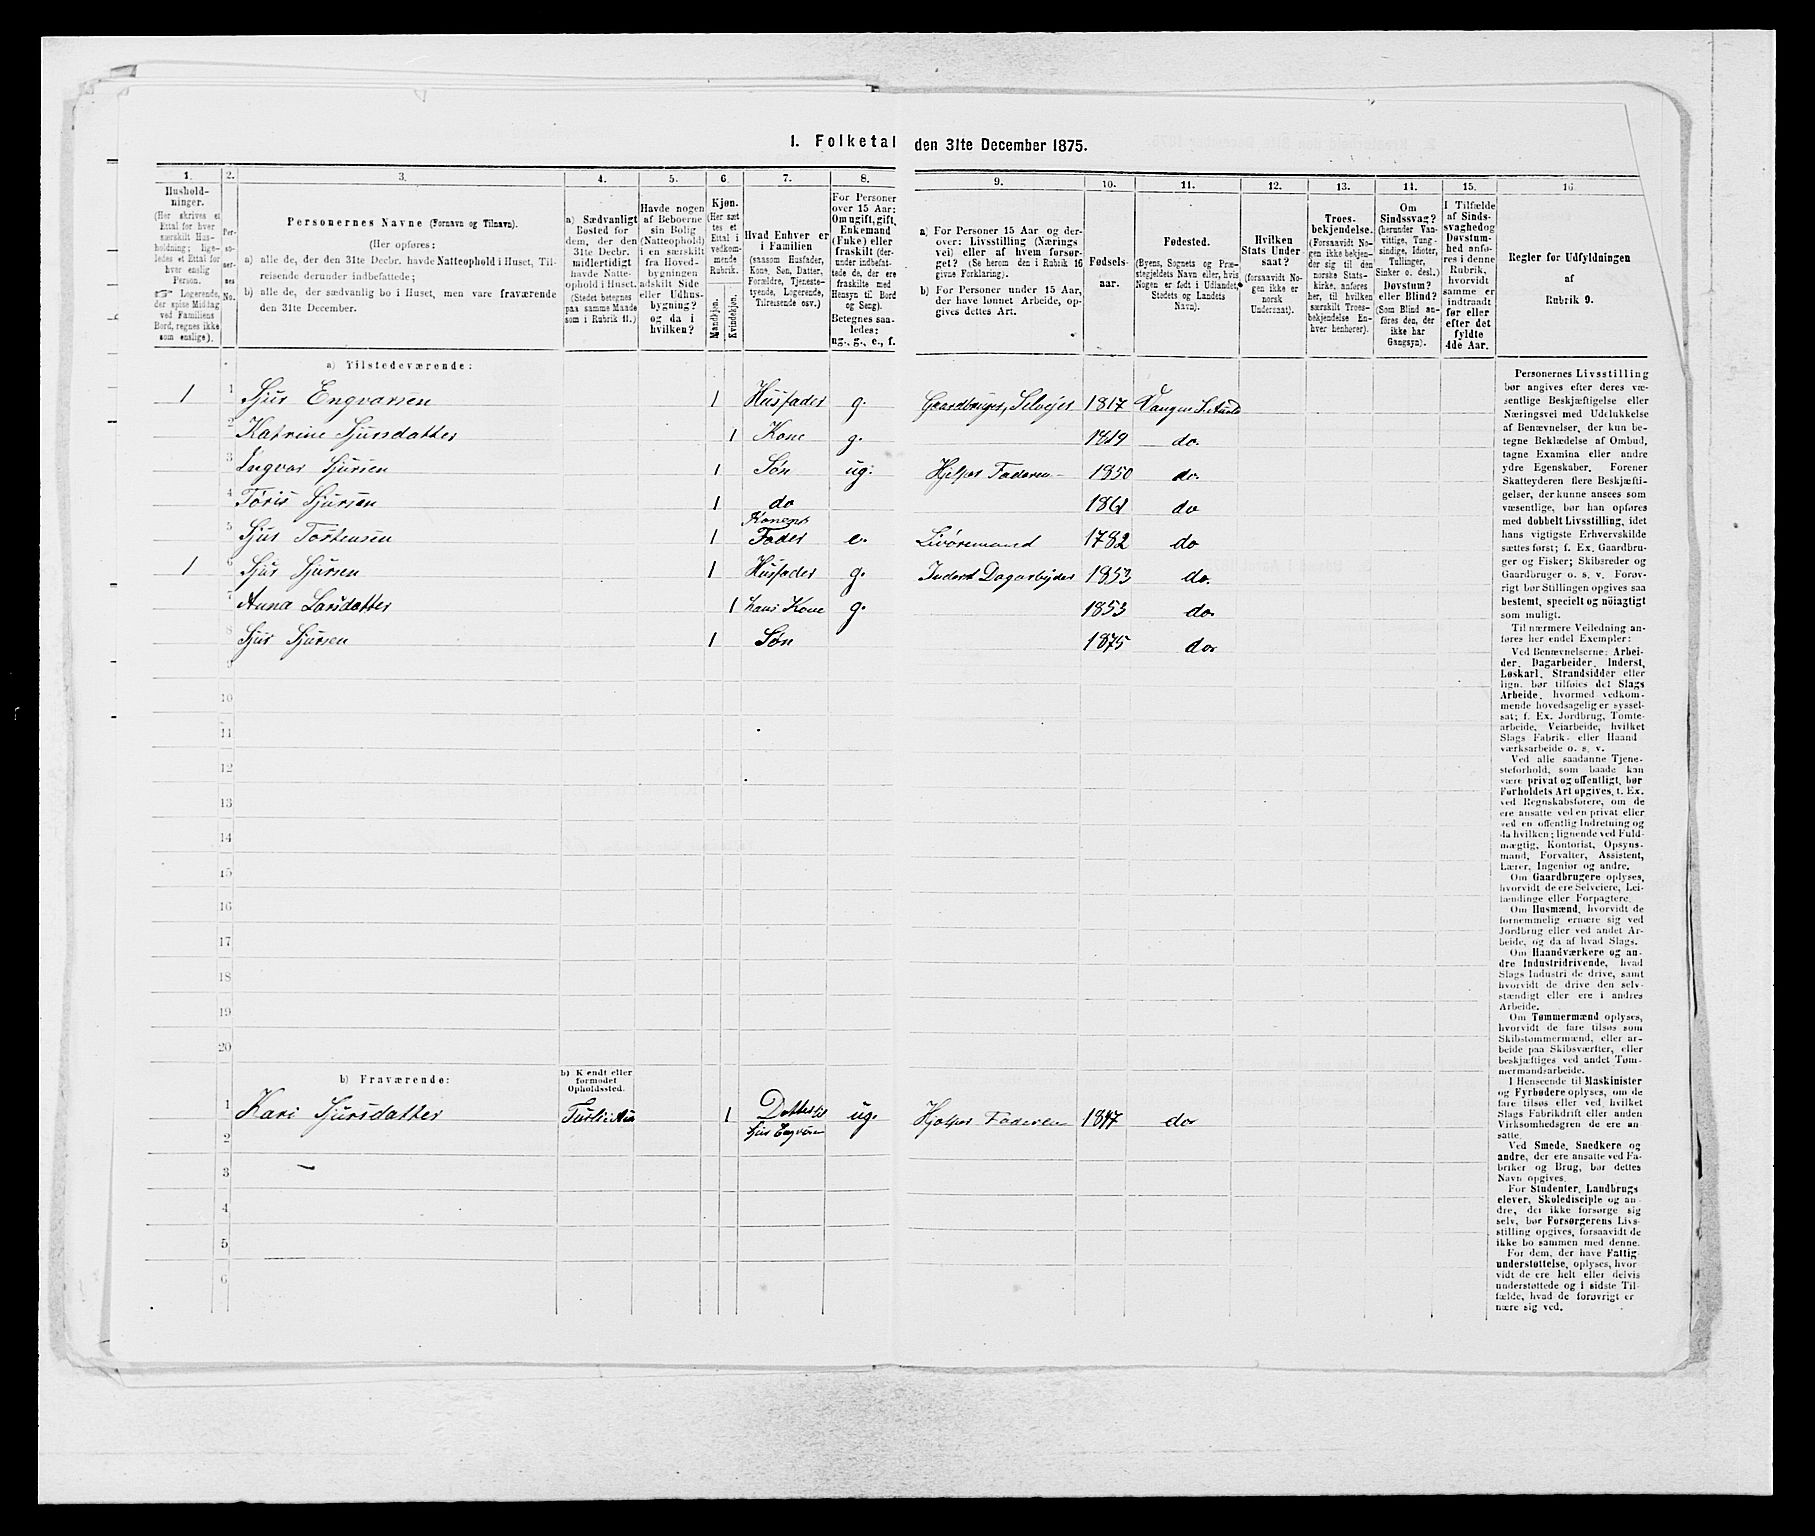 1. Folketal den 31te December 1875.
1. 2. 3. 4. 5. 6. 7. 8. 9. 10. 11. 12. 13. 14. 15. 16.
Hushold-
ninger.
(Her skrives et
Ettal for hver
særskilt Hus-
holdning; lige-
ledes et Ettal for
hver enslig
Person.
Logerende,
der spise Middag
ved Familiens
Bord, regnes ikke
som enslige).
Per-
so-
ner-
nes
No.
Personernes Navne (Fornavn og Tilnavn).
(Her opføres:
a) alle de, der den 31te Decbr. havde Natteophold i Huset, Til-
reisende derunder indbefattede;
b) alle de, der sædvanlig bo i Huset, men vare fraværende
den 31te December.
a) Sædvanligt
Bosted for
dem, der den
31te Decbr.
midlertidigt
havde Natte-
ophold i Huset.
(Stedet betegnes
paa samme Maade
som i Rubrik 11.)
Havde nogen
af Beboerne
sin Bolig
(Natteophold)
i en særskilt
fra Hoved-
bygningen
adskilt Side
eller Udhus-
bygning?
og da i
hvilken?
Kjøn.
(Her sæt
tes et
Ettal i
vedkom-
mende
Rubrik.
Mandkjøn.
Kvindekjøn.
Hvad Enhver er
i Familien
(saasom Husfader,
Kone, Søn, Datter,
Forældre, Tjeneste-
tyende, Logerende,
Tilreisende osv.)
For Personer
over 15 Aar:
Om ugift, gift,
Enkemand
(Enke) eller
fraskilt (der-
under indbefat-
tede de, der ere
fraskilte med
Hensyn til Bord
og Seng).
Betegnes saa-
ledes:
ug., g., e., f.
a) For Personer 15 Aar og der-
over: Livsstilling (Nærings
vei) eller af hvem forsør-
get? (Se herom den i Rubrik 16
givne Forklaring).
b) For Personer under 15 Aar,
der have lønnet Arbeide, op-
gives dettes Art.
Fødsels-
aar.
Fødested.
(Byens, Sognets og Præ-
stegjeldets Navn eller, hvis
Nogen er født i Udlandet,
Stedets og Landets
Navn).
Hvilken
Stats Under
saat?
(forsaavidt No-
gen ikke er
norsk
Undersaat).
Troes-
bekjendelse.
(Forsaavidt No-
gen ikke bekjen-
der sig til den
norske Stats-
kirke, anføres
her, til hvilken
særskilt Troes-
bekjendelse En-
hver henhører).
Om
Sindssvag?
(herunder Van-
vittige, Tung-
sindige, Idioter,
Tullinger,
Sinker o. desl.)
Døvstum?
eller Blind?
(Som Blind an-
føres den, der
ikke har
Gangsyn).
I Tilfælde
af Sinds-
svaghed og
Døvstum-
hed anfø-
res i denne
Rubrik,
hvorvidt
samme er
indtraadt
før eller
efter det
fyldte
4de Aar.
Regler for Udfyldningen
af
Rubrik 9.
a) Tilstedeværende:
1 1 Sjur Engvarsen 1 Husfader g. Gaardbruger, Selvejer 1817 Vangen S. Aurl
2 Katrine Sjursdatter 1 Kone g. 1819 do.
3 Ingvar Sjursen 1 Søn ug. Hjelper Faderen 1850 do.
4 Toris Sjursen 1 do 1861 do
5 Sjur Torstensen 1 Konens Fader e. Livøremand 1782 do
1 6 Sjur Sjursen 1 Husfader g. Inderst Dagarbejder 1853 do.
7 Anna Larsdatter 1 hans Kone g. 1853 do.
8 Sjur Sjursen 1 Søn 1875 do
9
10
11
12
13
14
15
16
17
18
19
20
b) Fraværende:
b) Kendt eller
formodet
Opholdssted.
1 Kari Sjursdatter 1 Datter til ug. Hjelper Faderen 1847 do
2 Sjur Engvarsen
3
4
5
6
Personernes Livsstilling
bør angives efter deres væ-
sentlige Beskjæftigelse eller
Næringsvei med Udelukkelse
af Benævnelser, der kun be-
tegne Beklædelse af Ombud,
tagne Examina eller andre
ydre Egenskaber. Forener
Skatteyderen flere Beskjæfti-
gelser, der kunne ansees som
væsentlige, bør han opføres
med dobbelt Livsstilling, idet
hans vigtigste Erhvervskilde
sættes først; f. Ex. Gaardbru-
ger og Fisker; Skibsreder og
Gaardbruger o. s. v. Forøv-
rigt bør Stillingen opgives saa
bestemt, specielt og nöiagtigt
som muligt.
Til nærmere Veiledning an-
føres her endel Exempler:
Ved Benævnelserne: Arbei-
der, Dagarbeider, Inderst,
Løskarl, Strandsidder eller
lign. bør tilføies det Slags
Arbeide, hvormed vedkom-
mende hovedsagelig er syssel-
sat; f. Ex. Jordbrug, Tomte-
arbeide, Veiarbeide, hvilket
Slags Fabrik- eller Haand
værksarbeide o. s. v.
Ved alle saadanne Tjene-
steforhold, som baade kan
være privat og offentligt, bør
Forholdets Art opgives, t. Ex.
ved Regnskabsførere, om de
ere ansatte ved en privat eller
ved en offentlig Indretning og
da hvilken; lignende ved Fuld-
mægtig, Kontorist, Opsyns-
mand, Forvalter, Assistent,
Lærer, Ingeniør og andre.
Om Gaardbrugere oplyses,
hvorvidt de ere Selveiere, Lei-
lændinge eller Forpagtere.
Om Husmænd, hvorvidt de
fornemmelig ernære sig ved
Jordbrug eller ved andet Ar-
beide, og da af hvad Slags.
Om Haandværkere og an-
dre Industridrivende, hvad
Slags Industri de drive, samt
hvorvidt de drive den selv-
stændigt eller ere i andres
Arbeide.
Om Tømmermænd oplyses,
hvorvidt de fare tilsøs som
Skibstømmermænd, eller ar-
beide paa Skibsværfter, eller
beskjæftiges ved andet Tøm-
mermandsarbeide.
I Henseende til Maskinister
og Fyrbødere oplyses, om de
fare tilsøs eller ved hvilket
Slags Fabrikdrift eller anden
Virksomhed de ere an-
satte.
Ved Smede, Snedkere og
andre, der ere ansatte ved Fa-
briker og Brug, bør dettes
Navn opgives.
For Studenter, Landbrugs
elever, Skoledisciple og an-
dre, der ikke forsørge sig
selv, bør Forsørgerens Livs-
stilling opgives, forsaavidt de
ikke bo sammen med denne.
For dem, der have Fattig-
understøttelse, oplyses, hvor-
vidt de ere helt eller delvis
understøttede og i sidste Til-
fælde, hvad de forøvrigt er
nære sig ved.